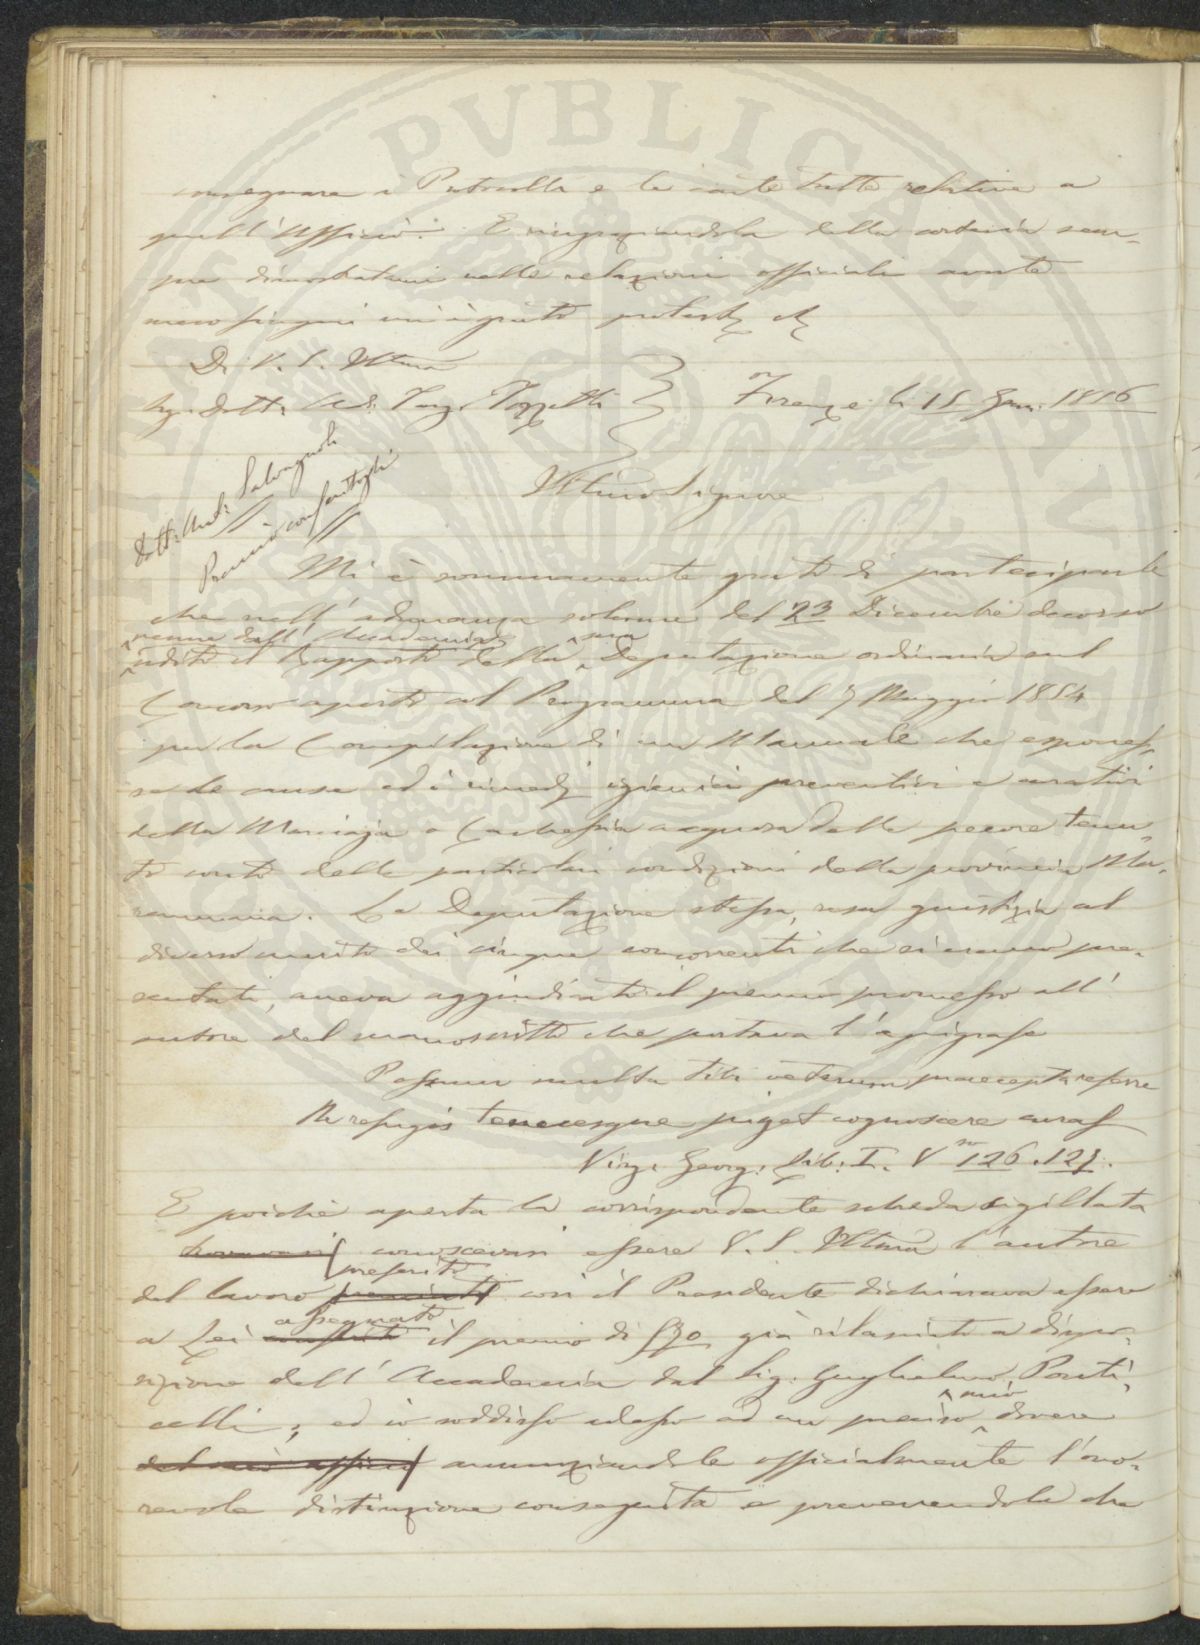 consegnare i Protocolli e le carte tutte relative a
quell'Uffizio. E ringraziandola della cortesia sem-
pre dimostratami nelle relazioni officiali avute
meco
Di V. S. Ill.ma
Sig. Dott. Ad. Targ. Tozzetti
Firenze li 15 Gen. 1856
Dott. Ant. Salvagnoli
Premio
Ill.mo Signore
Mi è sommamente grato di parteciparle
che nell'adunanza solenne del 23 Dicembre decorso
venne dall'Accademia
udito il Rapporto della sua Deputazione ordinaria sul
Concorso aperto col Programma del 7 Maggio 1854
per la Compilazione di un Manuale che esponesse
le cause ed i rimedj igienici preventivi e curativi
della Marciaja o Cachessia acquosa delle pecore tenu-
to conto delle particolari condizioni della provincia Ma-
remmana. La Deputazione stessa, resa giustizia al
diverso merito dei cinque concorrenti che si erano pre-
sentati, aveva aggiudicato il premio promesso all'
autore del manoscritto che portava l'epigrafe
Possum multa tibi veterum praecepta referre
Ni refugis tenuesque piget cognoscere curas
Virg. Georg. Lib. I. V
E poichè aperta la corrispondente scheda sigillata
conoscevasi essere V. S. Ill.ma l'autore
preferito
del lavoro così il Presidente dichiarava essere
assegnato
a Lei il premio di già rilasciato a dispo-
sizione dell'Accademia dal Sig. Guglielmo Ponti-
celli; ed io soddisfo adesso ad un preciso mio dovere
del mio officio annunziandole officialmente l'ono-
revole distinzione conseguita e prevenendola che